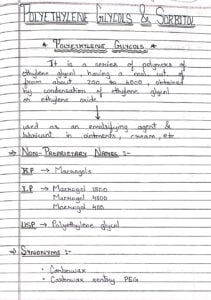 POLYETHYLENE GLYCOLS & SORBITOL
* POLYETHYLENE GLYCOLS *
It is a series of polymers of
ethylene glycol having a mol. wt of
from about 200 to 6000, obtained
by condensation of ethylene glycol
or ethylene oxide
used as an emulsifying agent &
lubricant in ointments, cream, etc
→ NON-PROPRIETARY NAMES :-
B.P → Macrogols
I.P → Macrogol 1500
Macrogol 4500
Macrogol 400
USP → Polyethylene glycol
→ SYNONYMS :-
• Carbowax
• Carbowax sentry PEG